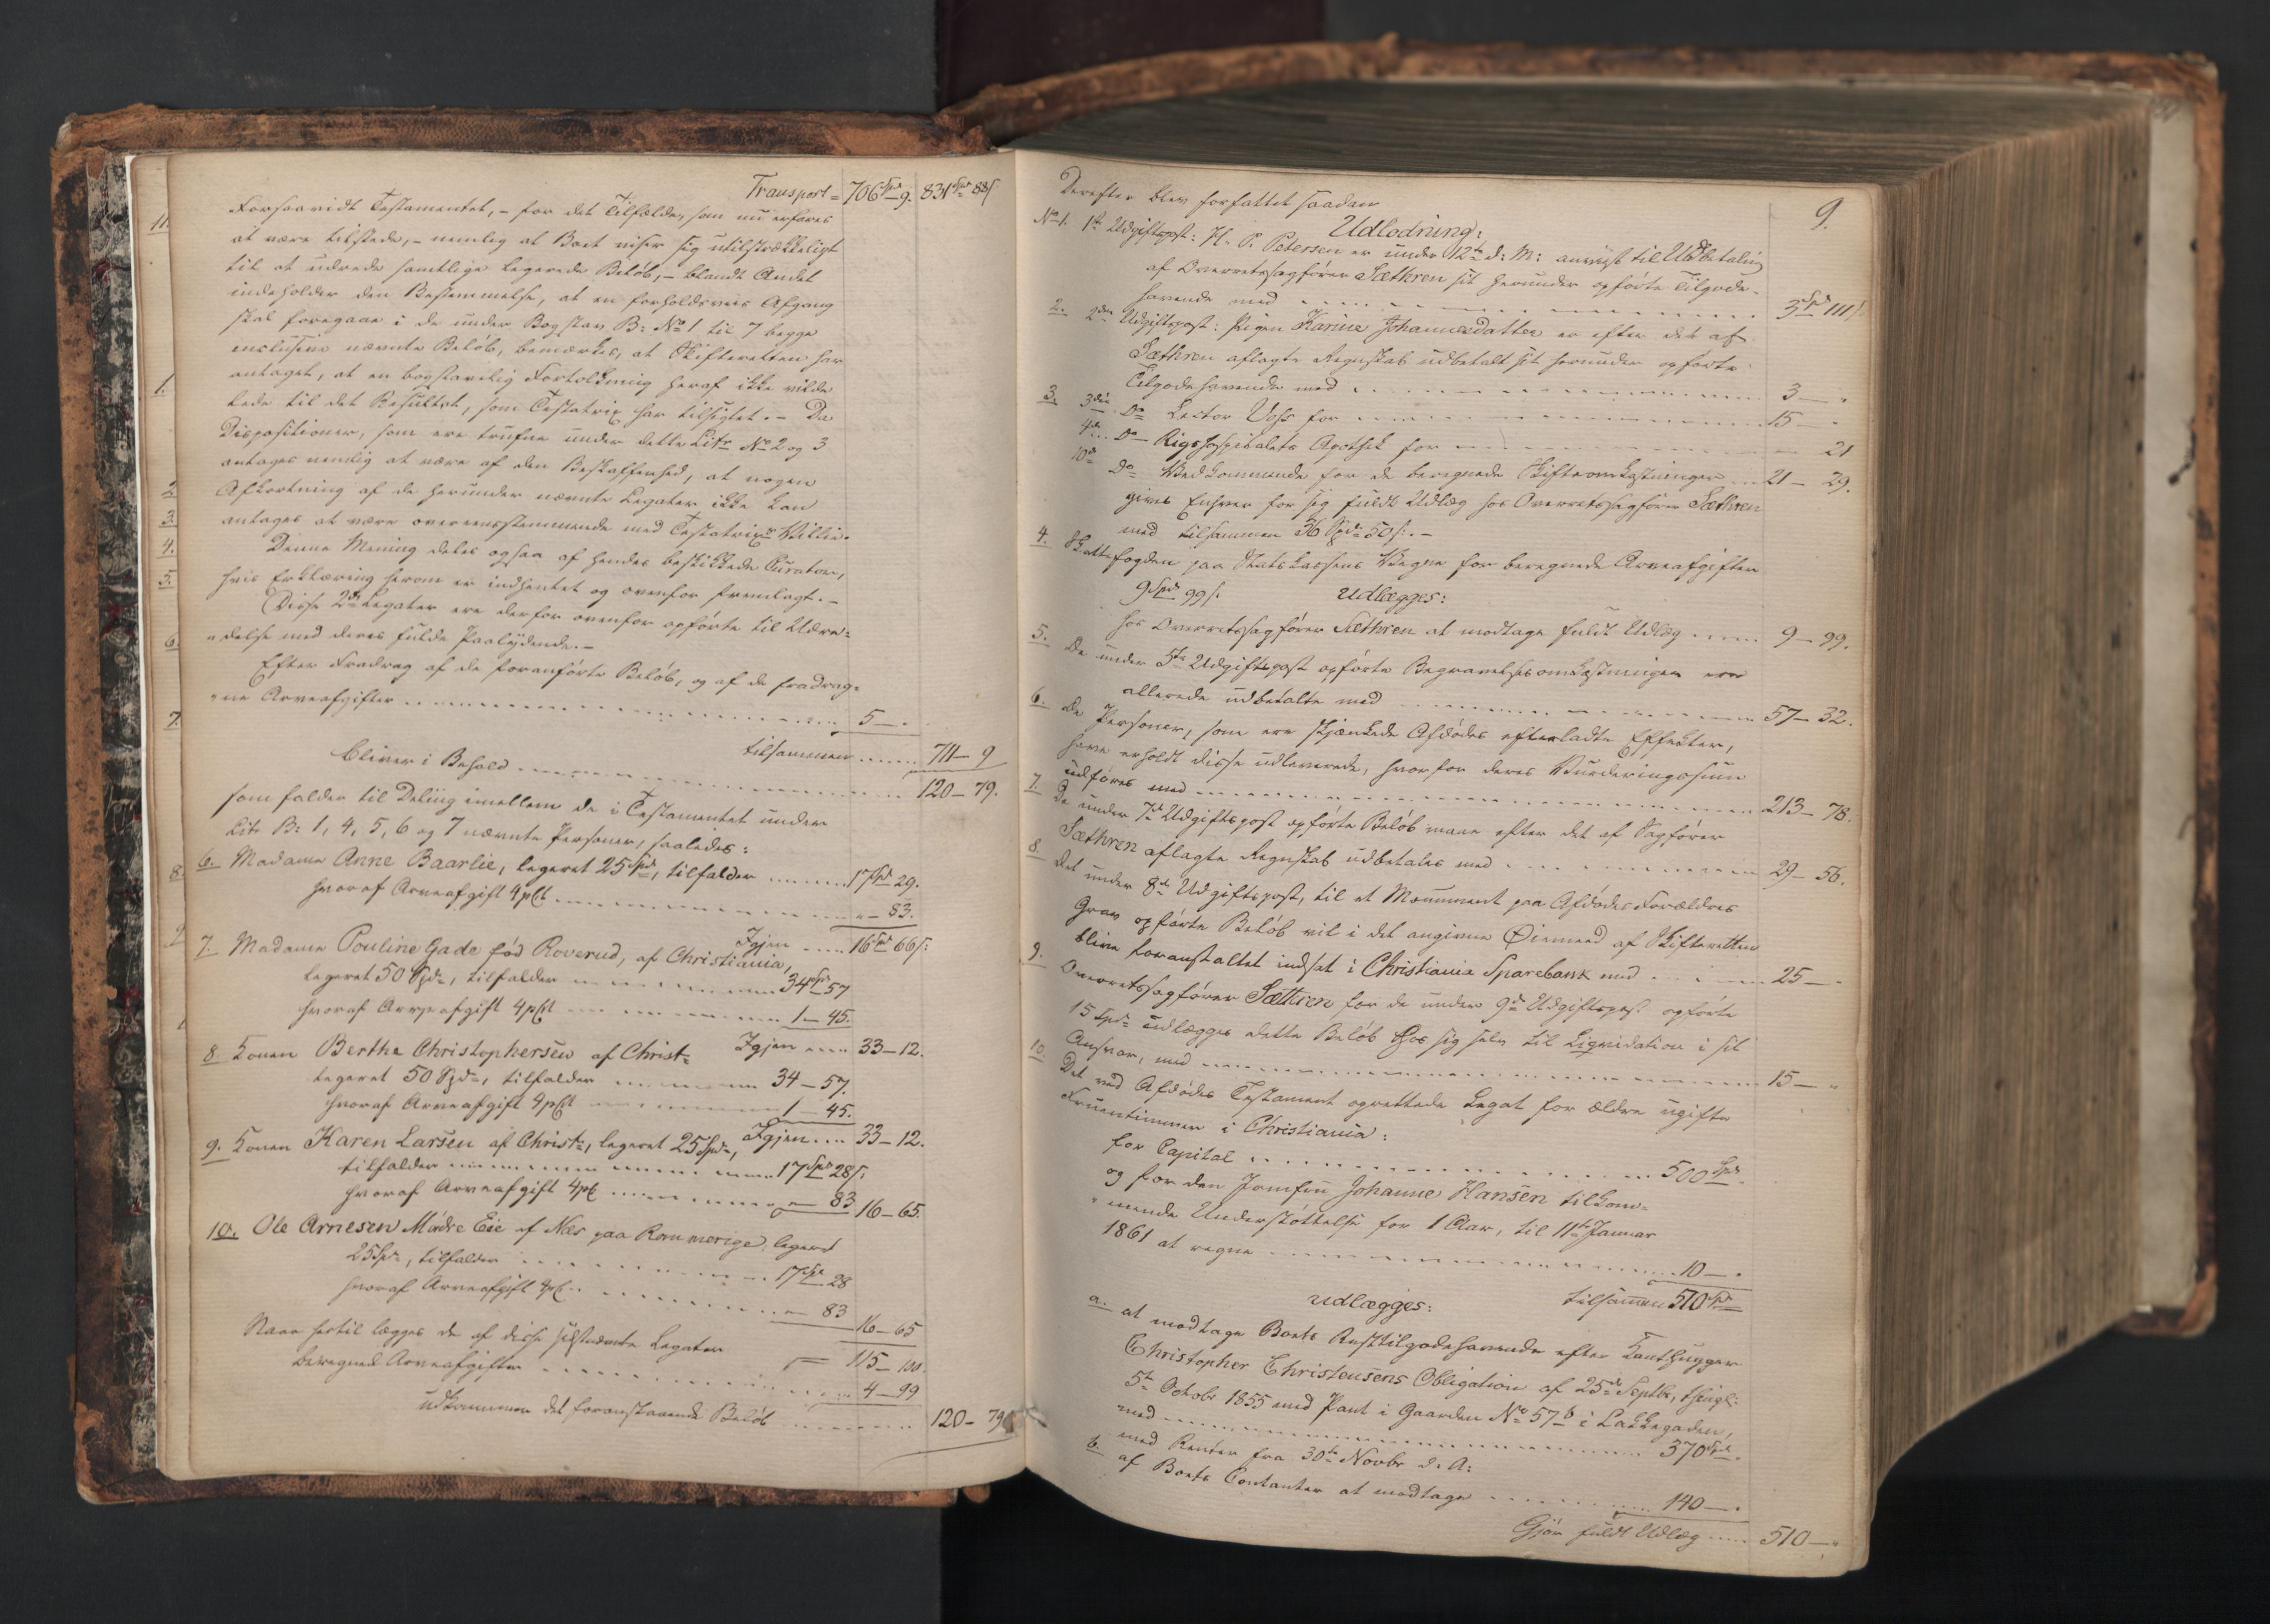 Transport = 706 Spd 9. 831 Spd 88 s
Forsaavidt Testamentet, – for det Tilfælde, som nu erfares
at være tilstede, – nemlig at Boet viser sig utilstrækkeligt
til at udrede samtlige legerede Beløb, – blandt Andet
indeholder den Bestemmelse, at en forholdsviis Afgang
skal foregaae i de under Bogstav B: No 1 til 7 begge
inclusive nævnte Beløb, bemærkes, at Skifteretten har
antaget, at en bogstavelig Fortolkning heraf ikke vilde
lede til det Resultat, som Testatrix har tilsigtet. – De
Dispositioner, som ere trufne under dette Litr No 2 og 3
antages nemlig at være af den Beskaffenhed, at nogen
Afkortning af de herunder nævnte Legater ikke kan
antages at være overeensstemmende med Testatrix's Villie.
Denne Mening deles ogsaa af hendes beskikkede Curator,
hvis Erklæring herom er indhentet og ovenfor fremlagt. –
Disse 2de Legater ere derfor ovenfor opførte til Udre-
delse med deres fulde Paalydende. –
Efter Fradrag af de foranførte Beløb, og af de fradrag-
ne Arveafgifter 5 – "
tilsammen 711 – 9
bliver i Behold 120 – 79.
som falder til Deling imellem de i Testamentet under
Litr B: 1, 4, 5, 6 og 7 nævnte Personer, saaledes:
6. Madame Anne Baarlie, legeret 25 Spd, tilfalder 17 Spd 29.
hvoraf Arveafgift 4 pCt " – 83.
Igjen 16 Spd 66 s:
7. Madame Pouline Gade fød Roverud, af Christiania,
legeret 50 Spd, tilfalder 34 Spd 57
hvoraf Arveafgift 4 pCt 1 – 45.
Igjen 33 – 12.
8. Konen Berthe Christophersen af Christ
legeret 50 Spd, tilfalder 34 – 57.
hvoraf Arveafgift 4 pCt 1 – 45.
Igjen 33 – 12.
9. Konen Karen Larsen af Christ, legeret 25 Spd,
tilfalder 17 Spd 28 s:
hvoraf Arveafgift 4 pC " – 83 16 – 65.
10. Ole Arnesen Mådre Eie af Næs paa Rommerige, legeret
25 Spd, tilfalder 17 Spd 28
hvoraf Arveafgift 4 pC " – 83
16 – 65
115 – 100.
Naar hertil lægges de af disse sidstnævnte Legater
beregnede Arveafgifter 4 – 99
udkommer det foranstaaende Beløb 120 – 79
9.
Derefter blev forfattet saadan
Udlodning:
No 1. 1ste Udgiftspost: H. P. Petersen er under 12te d: M: anviist til Udbetaling
af Overretssagfører Sæthren sit herunder opførte Tilgode-
havende med 3 Spd 111 s
2. 2den Udgiftspost: Pigen Karine Johannesdatter er efter det af
Sæthren aflagte Regnskab udbetalt sit herunder opførte
Tilgodehavende med 3 – "
3. 3die Do Lector Voss for 15 – "
4de Do Rigshospitalets Apothek for " – 21
10de Do Vedkommende for de beregnede Skifteomkostninger 21 – 29.
gives Enhver for sig fuldt Udlæg hos Overretssagfører Sæthren
med tilsammen 36 Spd 50 s. –
4. Skattefogden paa Statskassens Vegne for beregnede Arveafgifter
9 Spd 99 s: udlægges:
hos Overretssagfører Sæthren at modtage fuldt Udlæg 9 – 99.
5. De under 5te Udgiftspost opførte Begravelsesomkostninger ere
allerede udbetalte med 57 – 32.
6. De Personer, som ere skjænkede Afdødes efterladte Effekter,
have erholdt disse udleverede, hvorfor deres Vurderingssum
udføres med 213 – 78.
7. De under 7de Udgiftspost opførte Beløb maae efter det af Sagfører
Sæthren aflagte Regnskab udbetales med 29 – 56.
8. Det under 8de Udgiftspost, til et Monument paa Afdødes Forældres
Grav opførte Beløb vil i det angivne Øiemeed af Skifteretten
blive foranstaltet indsat i Christiania Sparebank med 25 – "
9. Overretssagfører Sæthren for de under 9de Udgiftspost opførte
15 Spd udlægges dette Beløb hos sig selv til Liqvidation i sit
Ansvar, med 15 – "
10. Det ved Afdødes Testament oprettede Legat for ældre ugifte
Fruentimmer i Christiania:
for Capital 500 Spd
og for den Jomfru Johanne Hansen tilkom-
mende Understøttelse for 1 Aar, til 11te Januar
1861 at regne 10 – "
tilsammen 510 Spd
udlægges:
a. at modtage Boets Resttilgodehavende efter Kanthugger
Christopher Christensens Obligation af 25de Septbr, thingl:
5te Octobr 1855 med Pant i Gaarden No 57 b i Lakkegaden,
med 370 Spd.
med Renter fra 30te Novbr d. A:
b. af Boets Contanter at modtage 140 – "
Gjør fuldt Udlæg 510 – "
11.
1.
2.
3.
4.
5.
6.
7.
8.
9